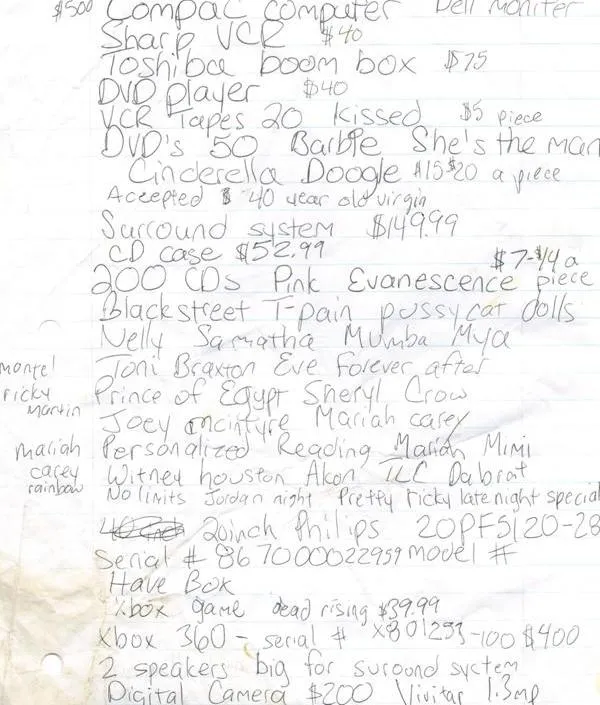 $500 Compac computer Dell moniter
Sharp VCR $40
Toshiba boom box $75
DVD player $40
VCR Tapes 20 kissed $5 piece
DVD's 50 Barbie She's the man
Cinderella Doogle $15-$20 a piece
Accepted $ 40 year old virgin
Surround system $149.99
CD case $52.99
$7-$14 a
200 CDs Pink Evanescence piece
Blackstreet T-pain pussycat dolls
Nelly Samatha Mumba Mya
montel Toni Braxton Eve Forever after
ricky martin Prince of Egypt Sheryl Crow
Joey mcintyre Mariah carey
mariah Personalized Reading Mariah Mimi
carey Witney houston Akon TLC Dabrat
rainbow No limits Jordan night Pretty ricky late night special
20inch Philips 20PF5120-28
Serial # 867000022959 model #
Have Box
Xbox game dead rising $39.99
Xbox 360 - serial # X801253-100 $400
2 speakers big for suround system
Digital Camera $200 Vivitar 1.3mp